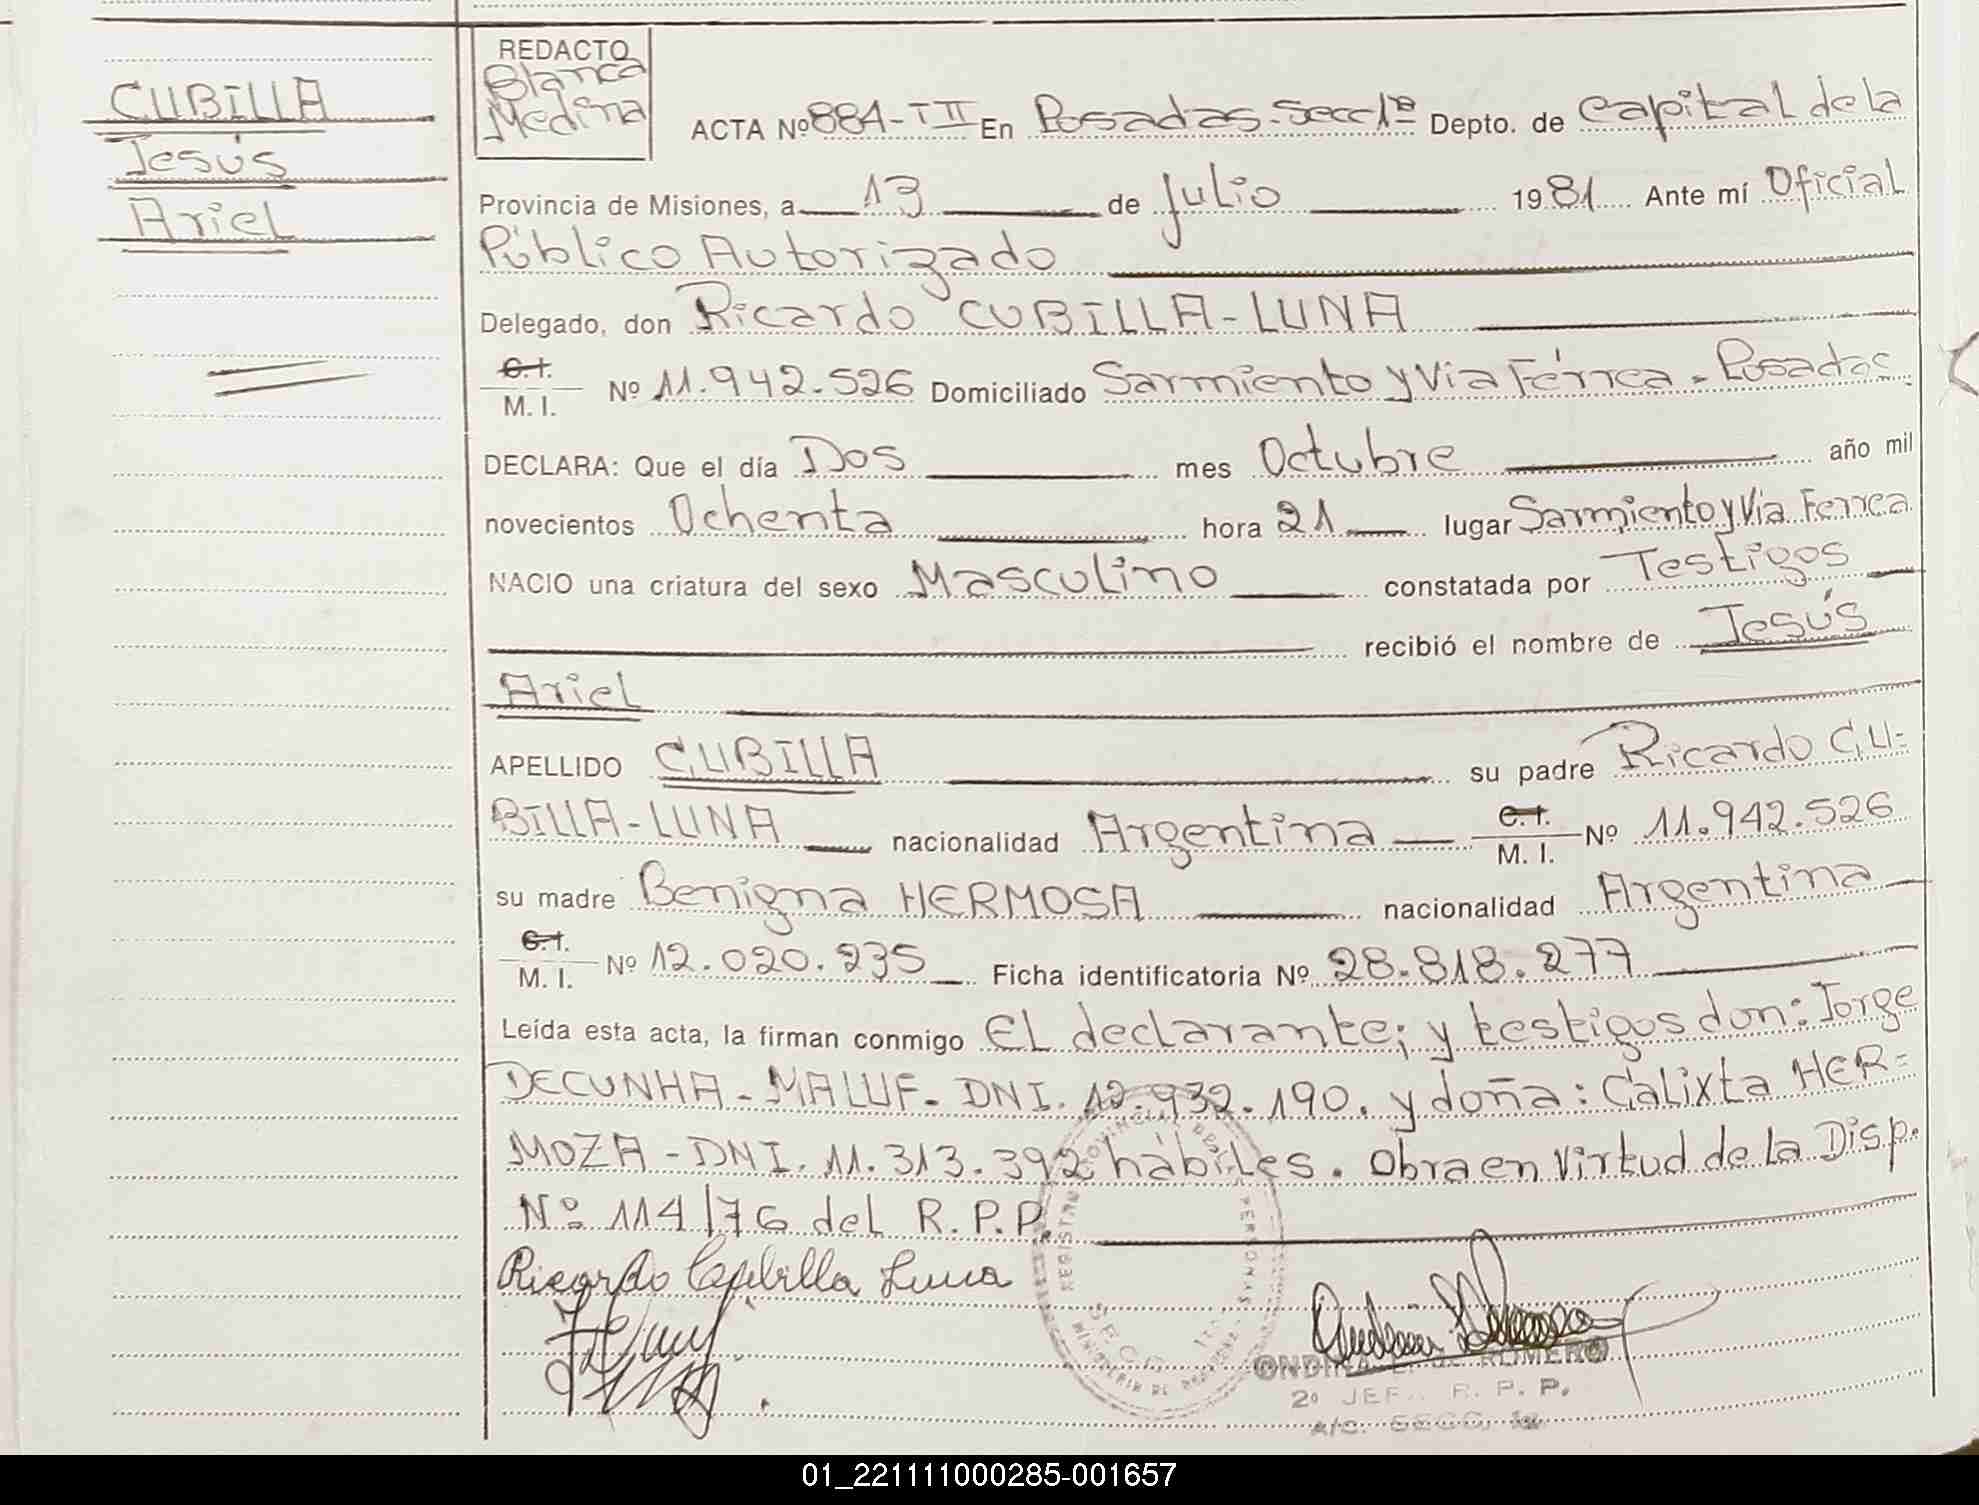 CUBILLA
Jesús
Ariel
REDACTO
Blanca
Medina
ACTA Nº 884-TII En Posadas-Secc 1ª Depto. de Capital de la
Provincia de Misiones, a 13 de Julio 1981 Ante mí Oficial
Público Autorizado
Delegado, don Ricardo CUBILLA-LUNA
C.I.
M. I. Nº 11.942.526 Domiciliado Sarmiento y Vía Férrea - Posadas
DECLARA: Que el día Dos mes Octubre año mil
novecientos Ochenta hora 21 lugar Sarmiento y Vía Ferrea
NACIO una criatura del sexo Masculino constatada por Testigos
recibió el nombre de Jesús
Ariel
APELLIDO CUBILLA su padre Ricardo CU=
BILLA-LUNA nacionalidad Argentina C.I. M. I. Nº 11.942.526
su madre Benigna HERMOSA nacionalidad Argentina
C.I.
M. I. Nº 12.020.235 Ficha identificatoria Nº 28.818.277
Leída esta acta, la firman conmigo El declarante; y testigos don: Jorge
DECUNHA-MALUF- DNI. 12.932.190. y doña: Calixta HER=
MOZA-DNI. 11.313.392 hábiles. Obra en Virtud de la Disp.
Nº 114/76 del R.P.P.
Ricardo Cubilla Luna
DE ROMERO
2º JEF.. R. P. P.
A/C. SECC. 1a
01_221111000285-001657